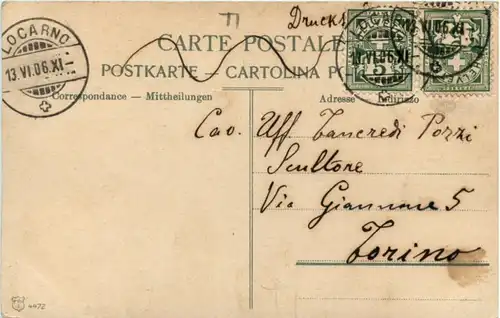 Drucks
CARTE POSTALE
POSTKARTE - CARTOLINA
LOCARNO
13.VI.06.XI
13.VI.06.XI
VI.06.XI
5
5
Correspondance - Mittheilungen
Adresse - Indirizzo
Cav. Uff. Tancredi Pozzi
Scultore
Via Giannone 5
Torino
4472